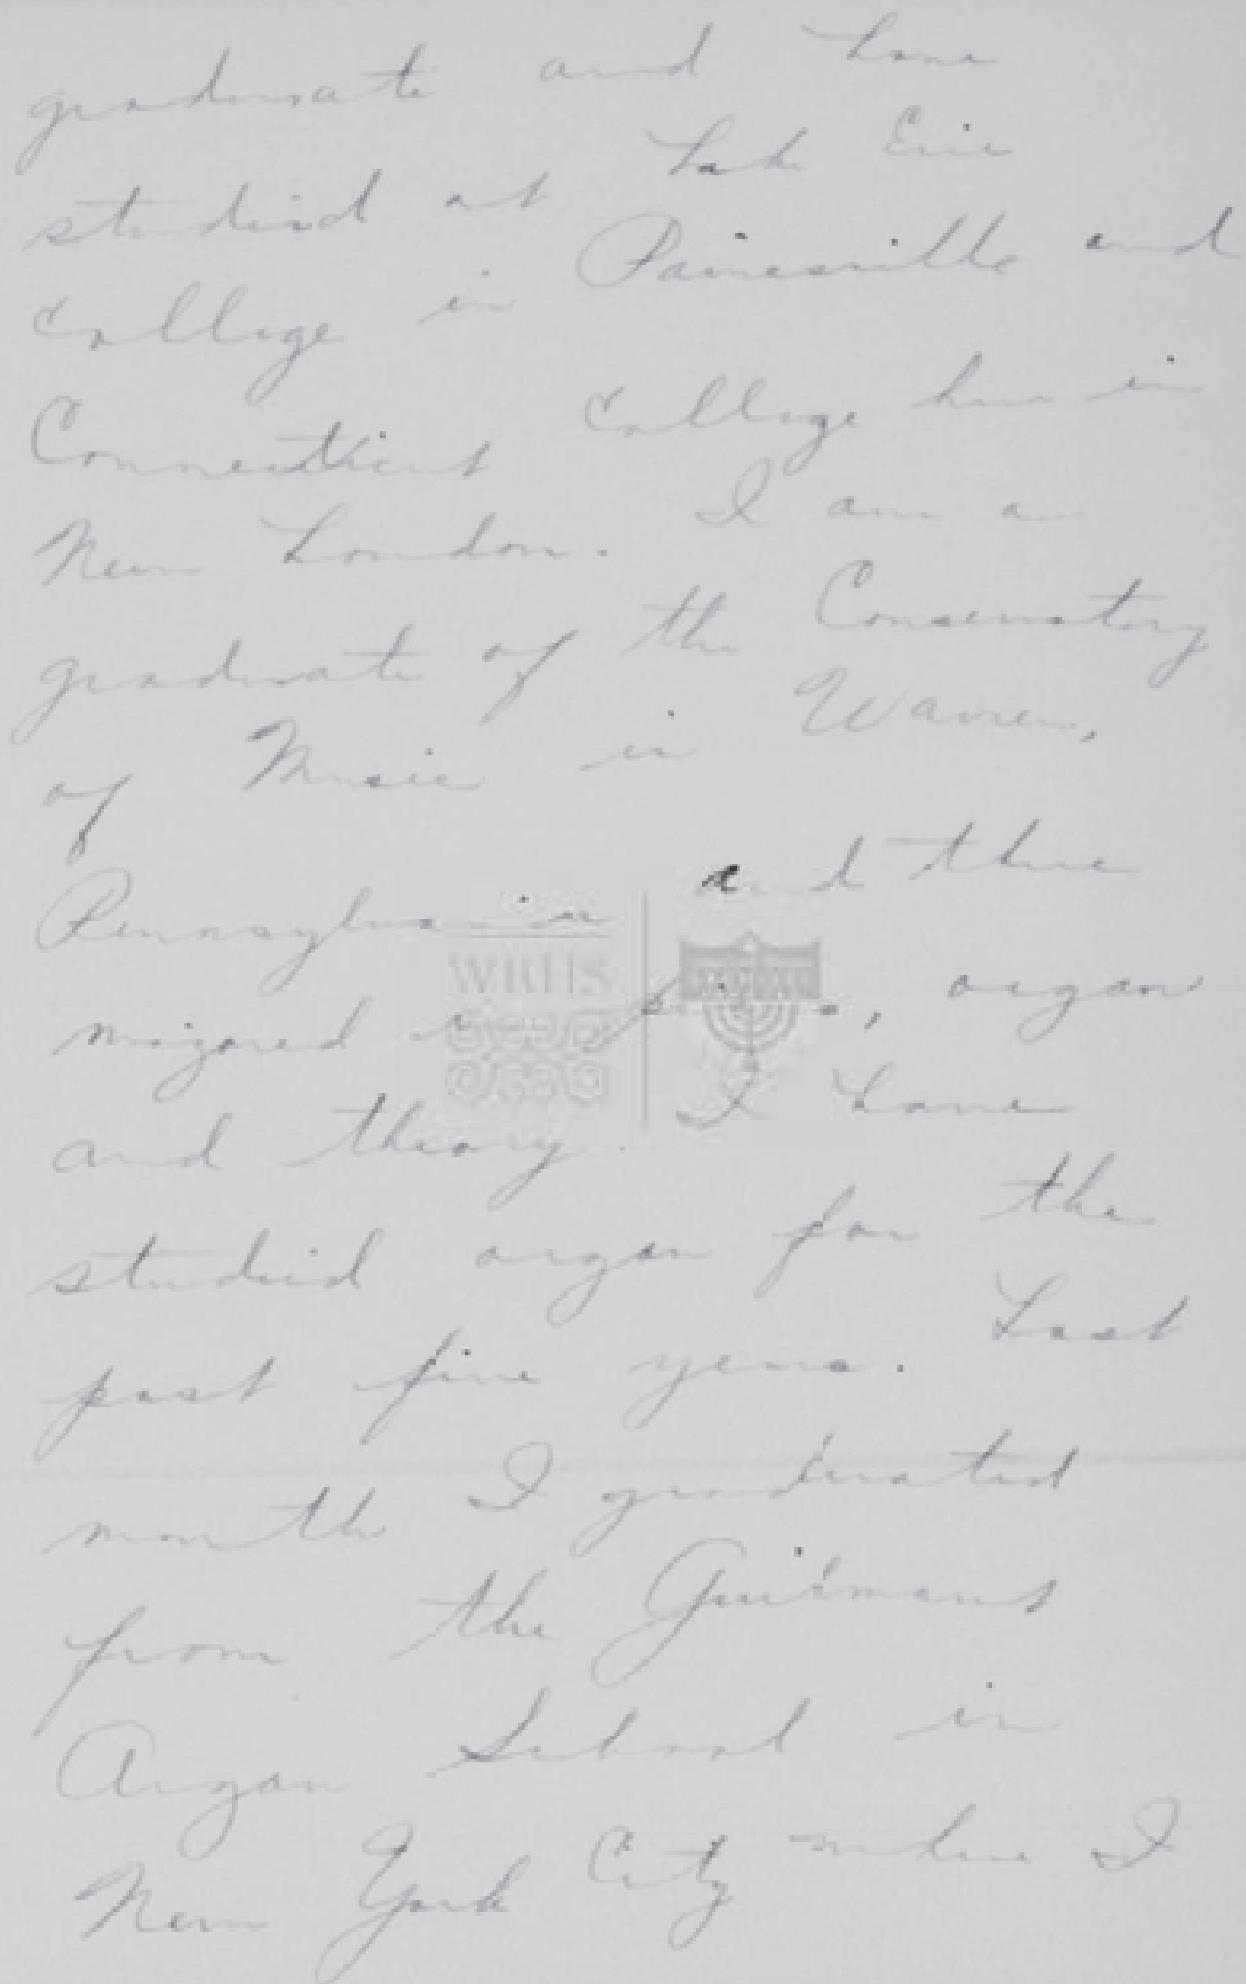 graduate and have
studied at Lake Erie
College in Painesville and
Connecticut College here in
New London. I am a
graduate of the Conservatory
of Music in Warren,
Pennsylvania and there
majored in piano, organ
and theory. I have
studied organ for the
past five years. Last
month I graduated
from the Guilmant
Organ School in
New York City where I
WRHS